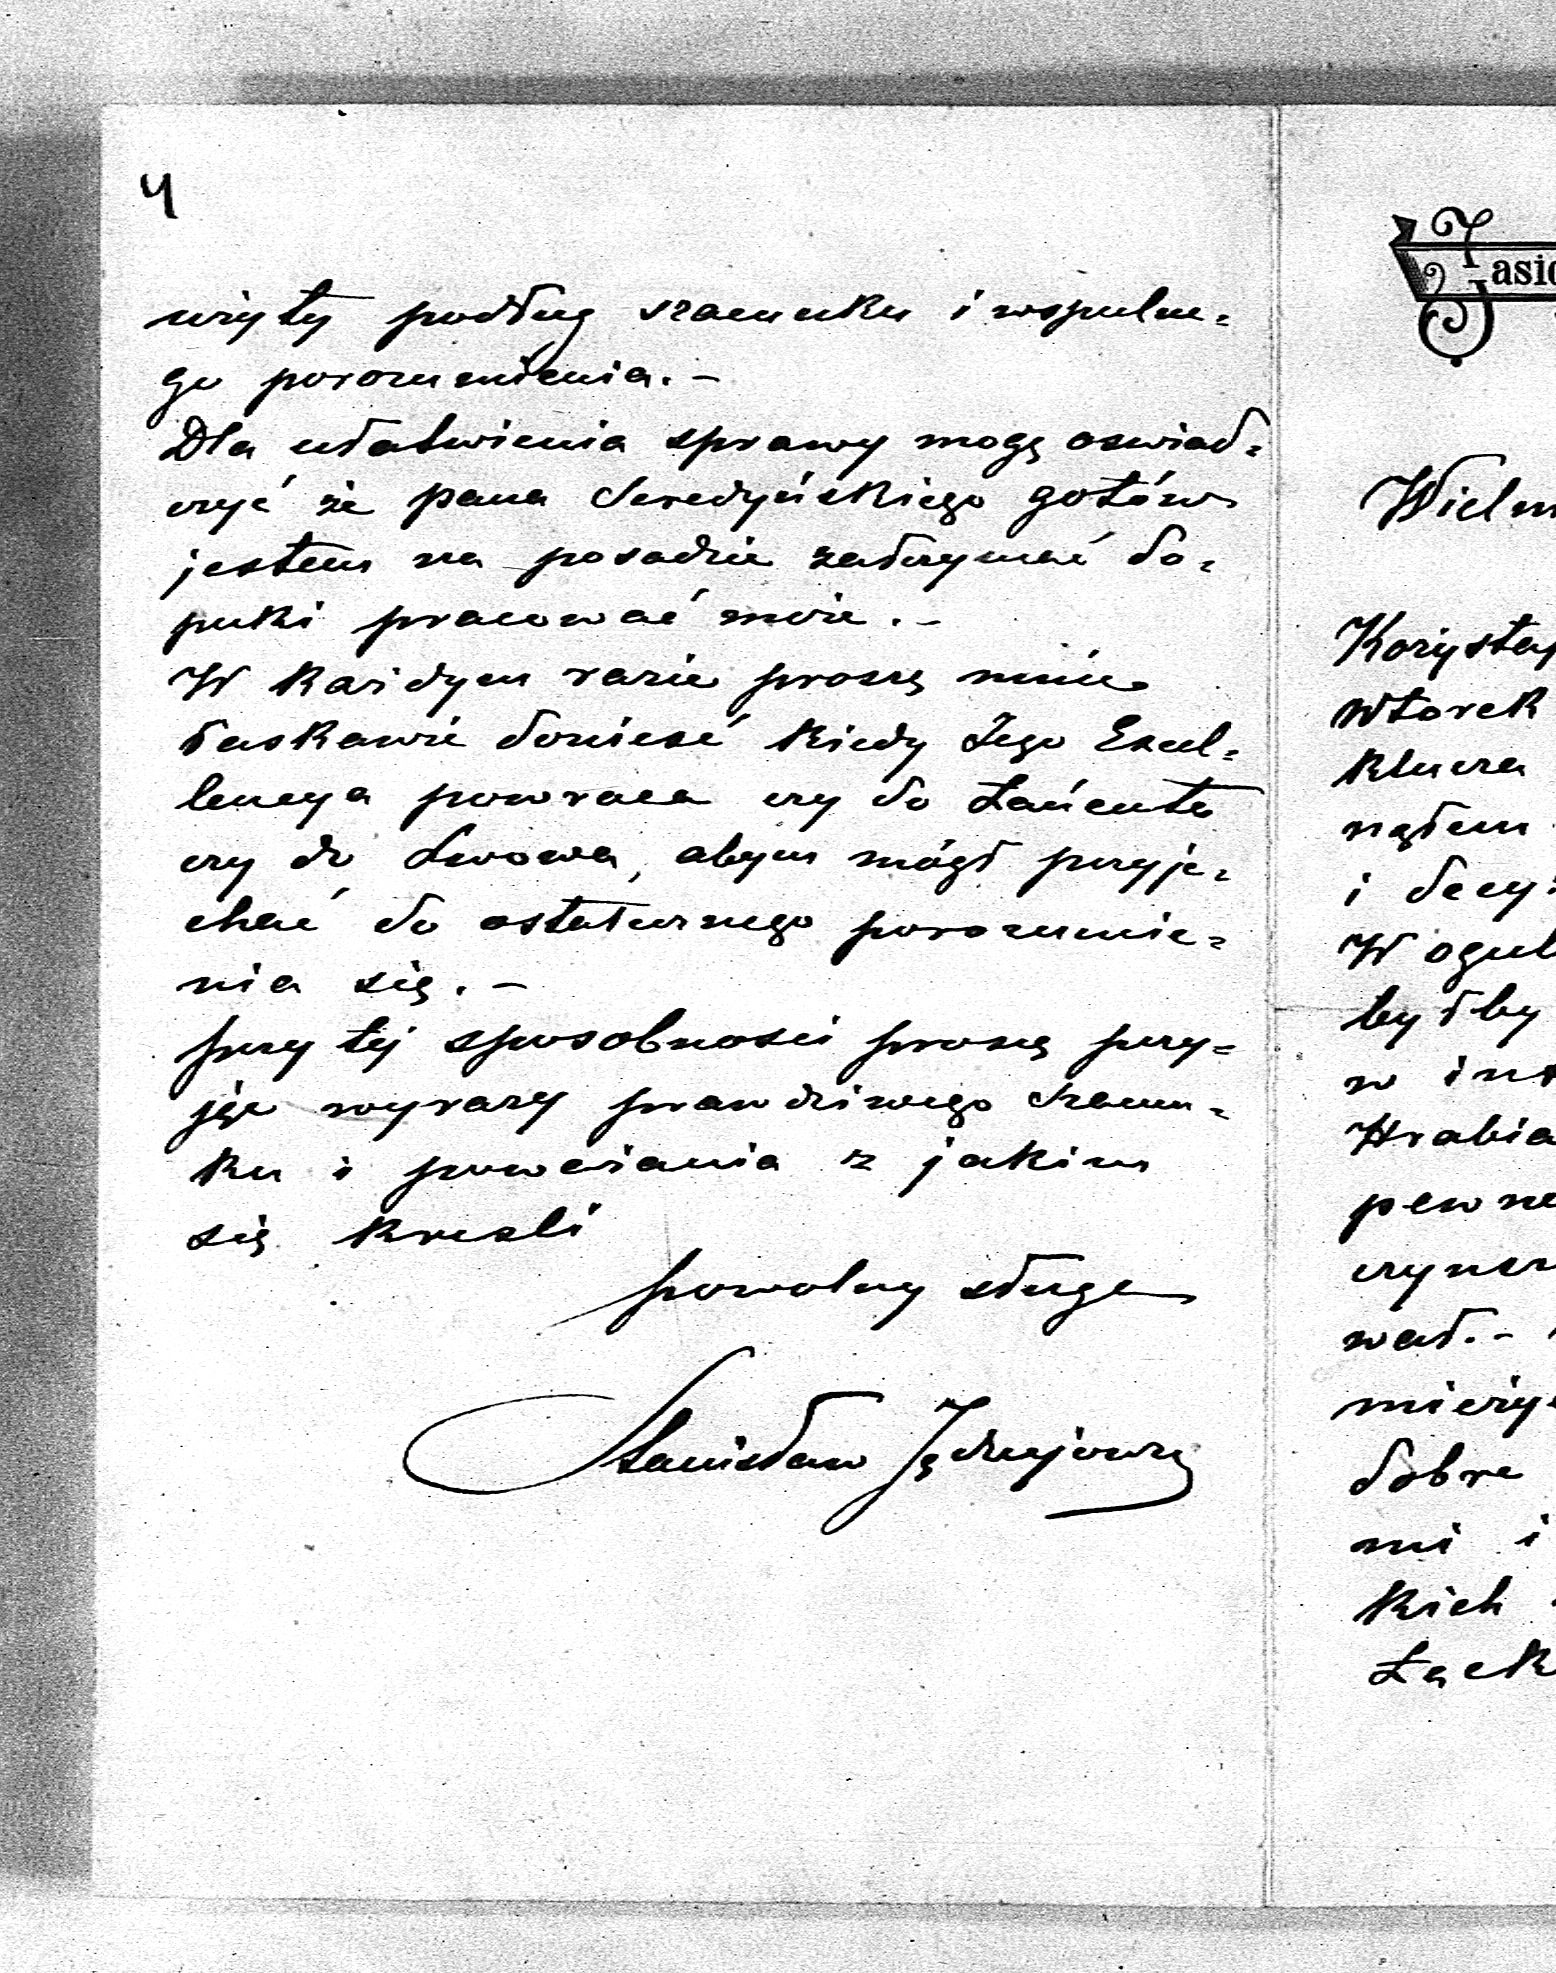 4
wizyty podług szacunku i wspulne=
go porozumienia. –
Dla ułatwienia sprawy mogę oswiad=
czyć że pana Seredyńskiego gotów
jestem na posadzie zatrzymać do=
puki pracować może. –
W każdym razie proszę mnie
łaskawie donieść kiedy Jego Excel=
lencya powraca czy do Łańcuta
czy do Lwowa, abym mógł przyje=
chać do ostatecznego porozumie=
nia się. –
przy tej sposobnosci proszę przy=
jąć wyrazy prawdziwego szacun=
ku i poważania z jakim
się kresli
powolny sługa
Stanisław Jędrzejowicz
asio
Wielm
Korzysta
wtorek
klucza
nąłem
i decy
W ogul
byłby
w int
Hrabia
pewne
czynsz
wał. –
mierzy
dobre
mi i
kich
Łąck